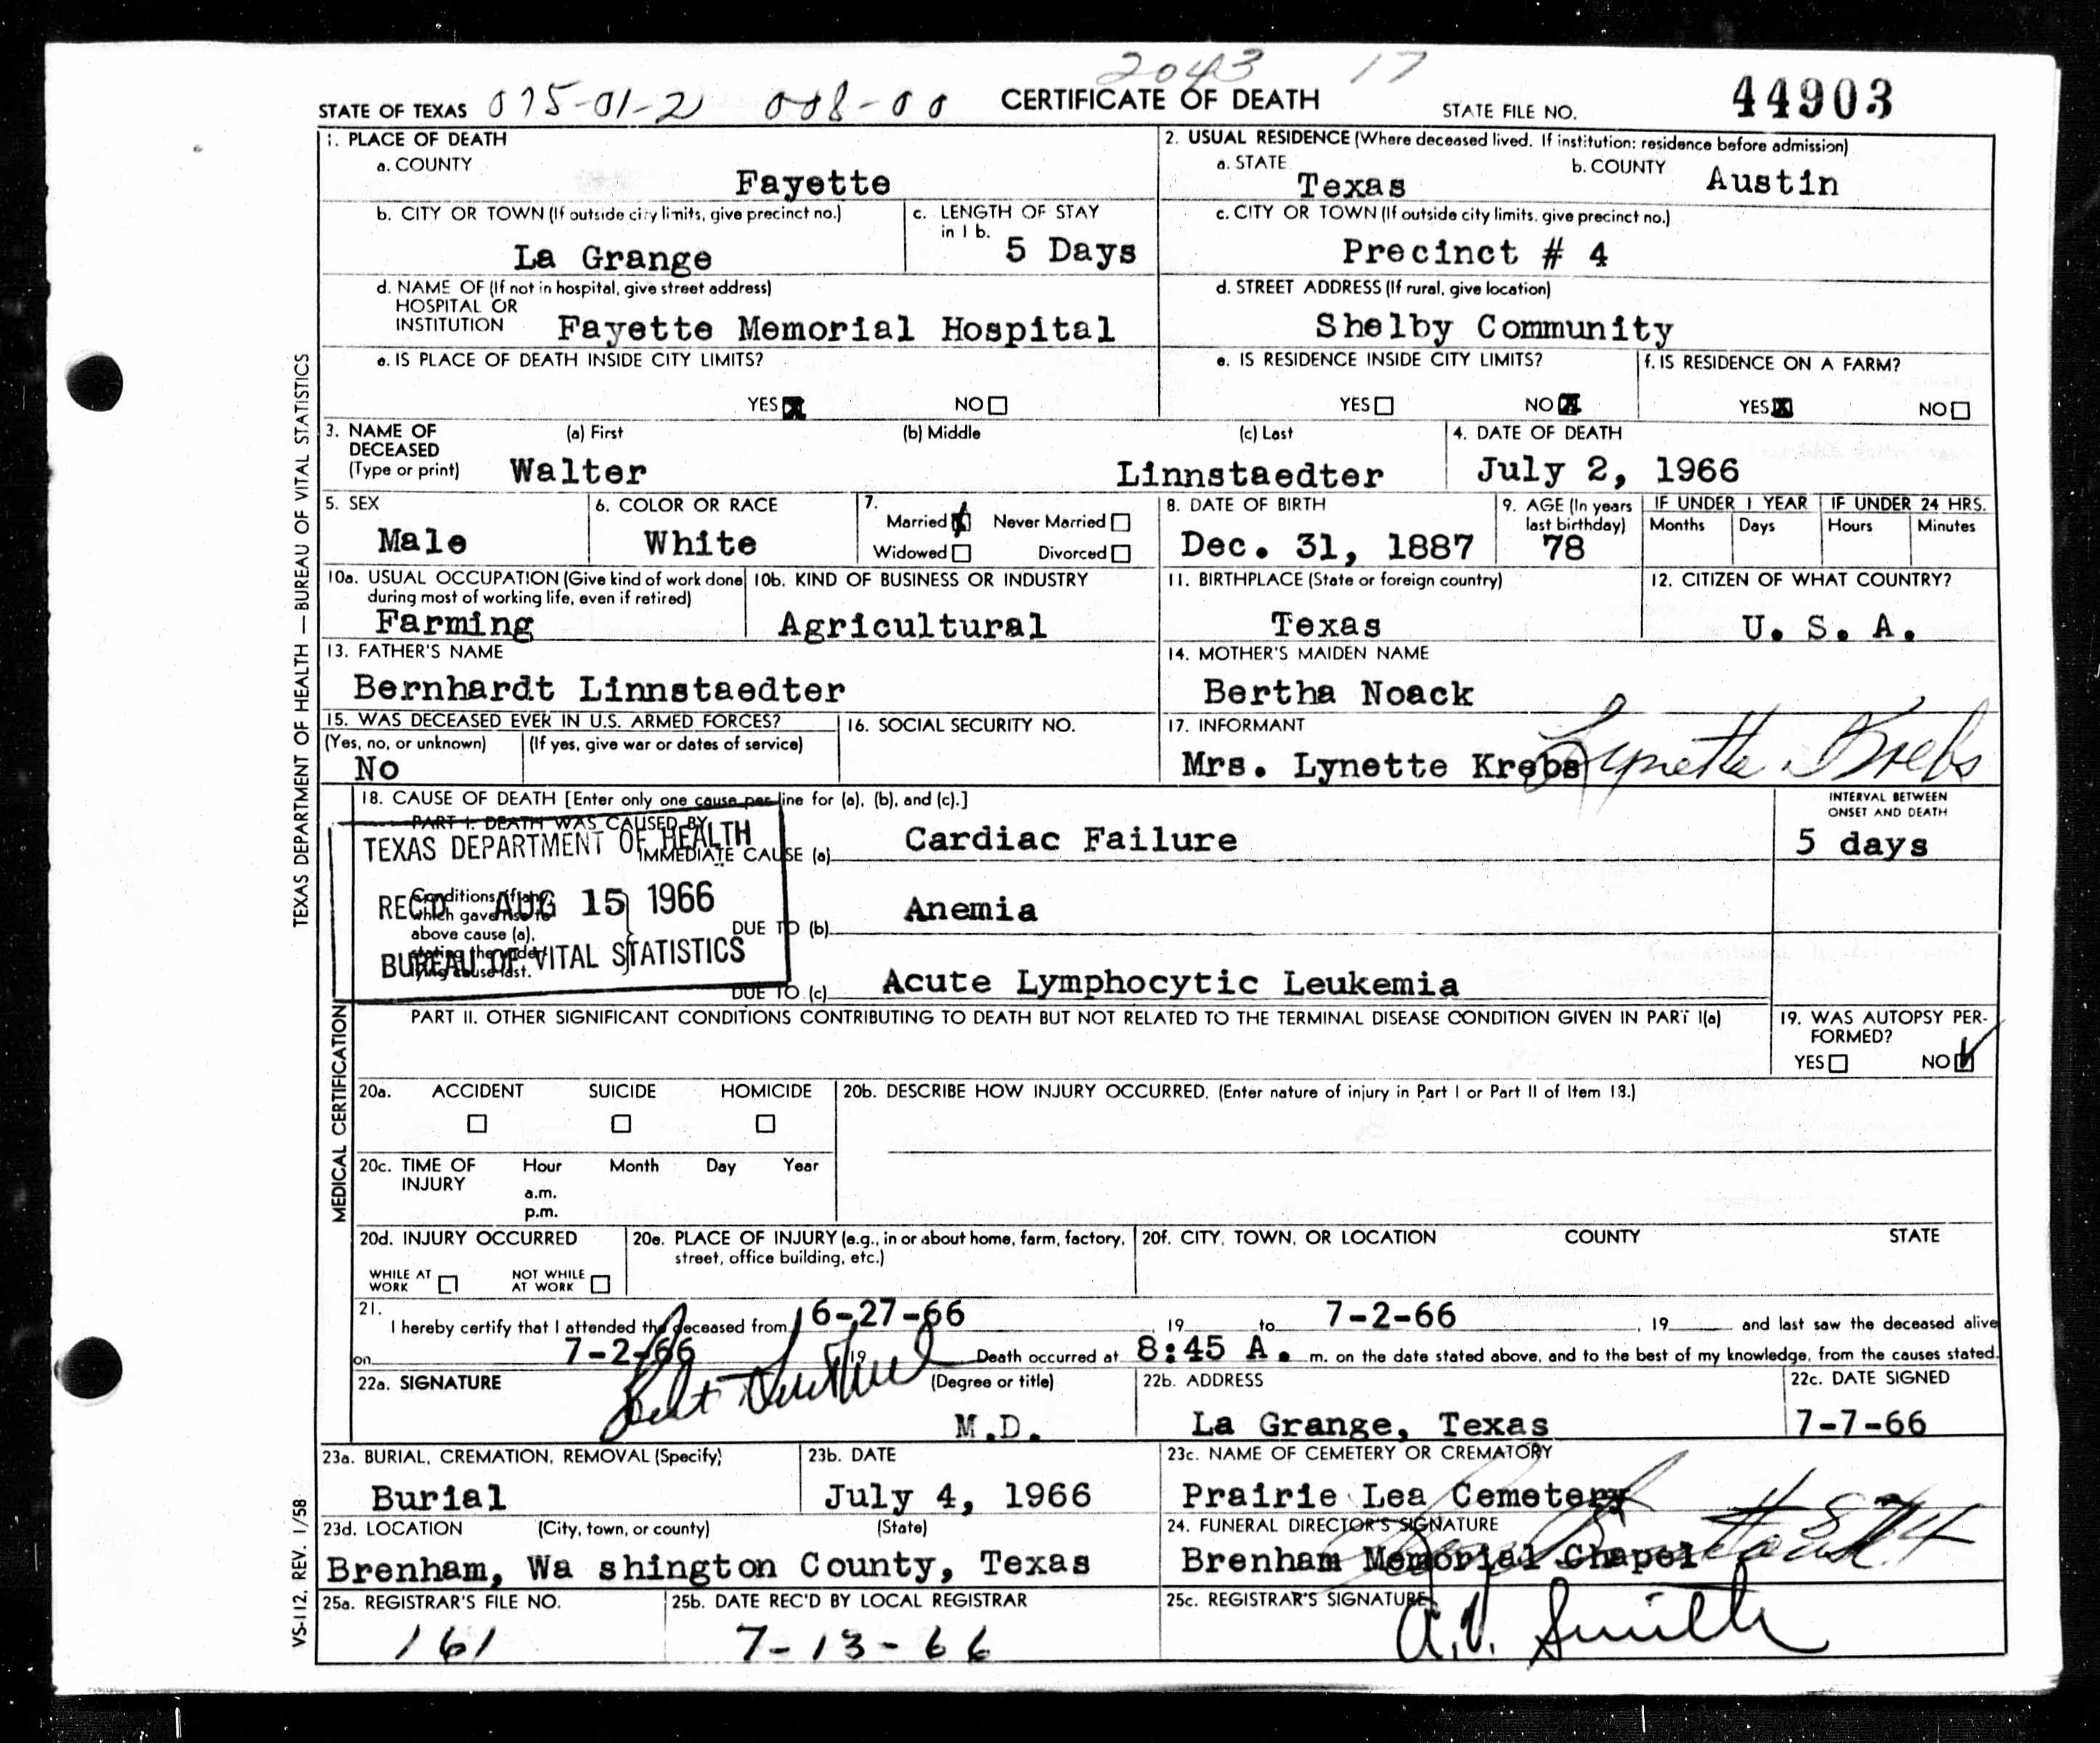 2043 17
STATE OF TEXAS 075-01-2 008-00 CERTIFICATE OF DEATH STATE FILE NO. 44903
1. PLACE OF DEATH
a. COUNTY
Fayette
2. USUAL RESIDENCE (Where deceased lived. If institution: residence before admission)
a. STATE
Texas
b. COUNTY Austin
b. CITY OR TOWN (If outside city limits, give precinct no.)
La Grange
c. LENGTH OF STAY
in 1 b.
5 Days
c. CITY OR TOWN (If outside city limits, give precinct no.)
Precinct # 4
d. NAME OF (If not in hospital, give street address)
HOSPITAL OR
INSTITUTION Fayette Memorial Hospital
d. STREET ADDRESS (If rural, give location)
Shelby Community
e. IS PLACE OF DEATH INSIDE CITY LIMITS?
YES X NO
e. IS RESIDENCE INSIDE CITY LIMITS?
YES NO X
f. IS RESIDENCE ON A FARM?
YES X NO
3. NAME OF
DECEASED
(Type or print)
(a) First (b) Middle (c) Last
Walter Linnstaedter
4. DATE OF DEATH
July 2, 1966
5. SEX
Male
6. COLOR OR RACE
White
7.
Married X Never Married
Widowed Divorced
8. DATE OF BIRTH
Dec. 31, 1887
9. AGE (In years
last birthday)
78
IF UNDER 1 YEAR
Months Days
IF UNDER 24 HRS.
Hours Minutes
10a. USUAL OCCUPATION (Give kind of work done
during most of working life, even if retired)
Farming
10b. KIND OF BUSINESS OR INDUSTRY
Agricultural
11. BIRTHPLACE (State or foreign country)
Texas
12. CITIZEN OF WHAT COUNTRY?
U. S. A.
13. FATHER'S NAME
Bernhardt Linnstaedter
14. MOTHER'S MAIDEN NAME
Bertha Noack
15. WAS DECEASED EVER IN U.S. ARMED FORCES?
(Yes, no, or unknown) (If yes, give war or dates of service)
No
16. SOCIAL SECURITY NO.
17. INFORMANT
Mrs. Lynette Krebs Lynette Krebs
18. CAUSE OF DEATH [Enter only one cause per line for (a), (b), and (c).]
PART I. DEATH WAS CAUSED BY
IMMEDIATE CAUSE (a) Cardiac Failure
INTERVAL BETWEEN
ONSET AND DEATH
5 days
TEXAS DEPARTMENT OF HEALTH
REC'D. AUG 15 1966
BUREAU OF VITAL STATISTICS
above cause (a),
DUE TO (b) Anemia
DUE TO (c) Acute Lymphocytic Leukemia
PART II. OTHER SIGNIFICANT CONDITIONS CONTRIBUTING TO DEATH BUT NOT RELATED TO THE TERMINAL DISEASE CONDITION GIVEN IN PART I(a)
19. WAS AUTOPSY PER-
FORMED?
YES NO ✓
20a. ACCIDENT SUICIDE HOMICIDE
20b. DESCRIBE HOW INJURY OCCURRED. (Enter nature of injury in Part I or Part II of Item 18.)
20c. TIME OF
INJURY
Hour Month Day Year
a.m.
p.m.
20d. INJURY OCCURRED
WHILE AT
WORK
NOT WHILE
AT WORK
20e. PLACE OF INJURY (e.g., in or about home, farm, factory,
street, office building, etc.)
20f. CITY, TOWN, OR LOCATION COUNTY STATE
21.
I hereby certify that I attended the deceased from 6-27-66, 19 to 7-2-66, 19 and last saw the deceased alive
on 7-2-66 19 Death occurred at 8:45 A. m. on the date stated above, and to the best of my knowledge, from the causes stated.
22a. SIGNATURE (Degree or title)
M.D.
22b. ADDRESS
La Grange, Texas
22c. DATE SIGNED
7-7-66
23a. BURIAL, CREMATION, REMOVAL (Specify)
Burial
23b. DATE
July 4, 1966
23c. NAME OF CEMETERY OR CREMATORY
Prairie Lea Cemetery
23d. LOCATION (City, town, or county) (State)
Brenham, Wa shington County, Texas
24. FUNERAL DIRECTOR'S SIGNATURE
Brenham Memorial Chapel
25a. REGISTRAR'S FILE NO.
161
25b. DATE REC'D BY LOCAL REGISTRAR
7-13-66
25c. REGISTRAR'S SIGNATURE
A.V. Smith
TEXAS DEPARTMENT OF HEALTH — BUREAU OF VITAL STATISTICS
MEDICAL CERTIFICATION
VS-112, REV. 1/58